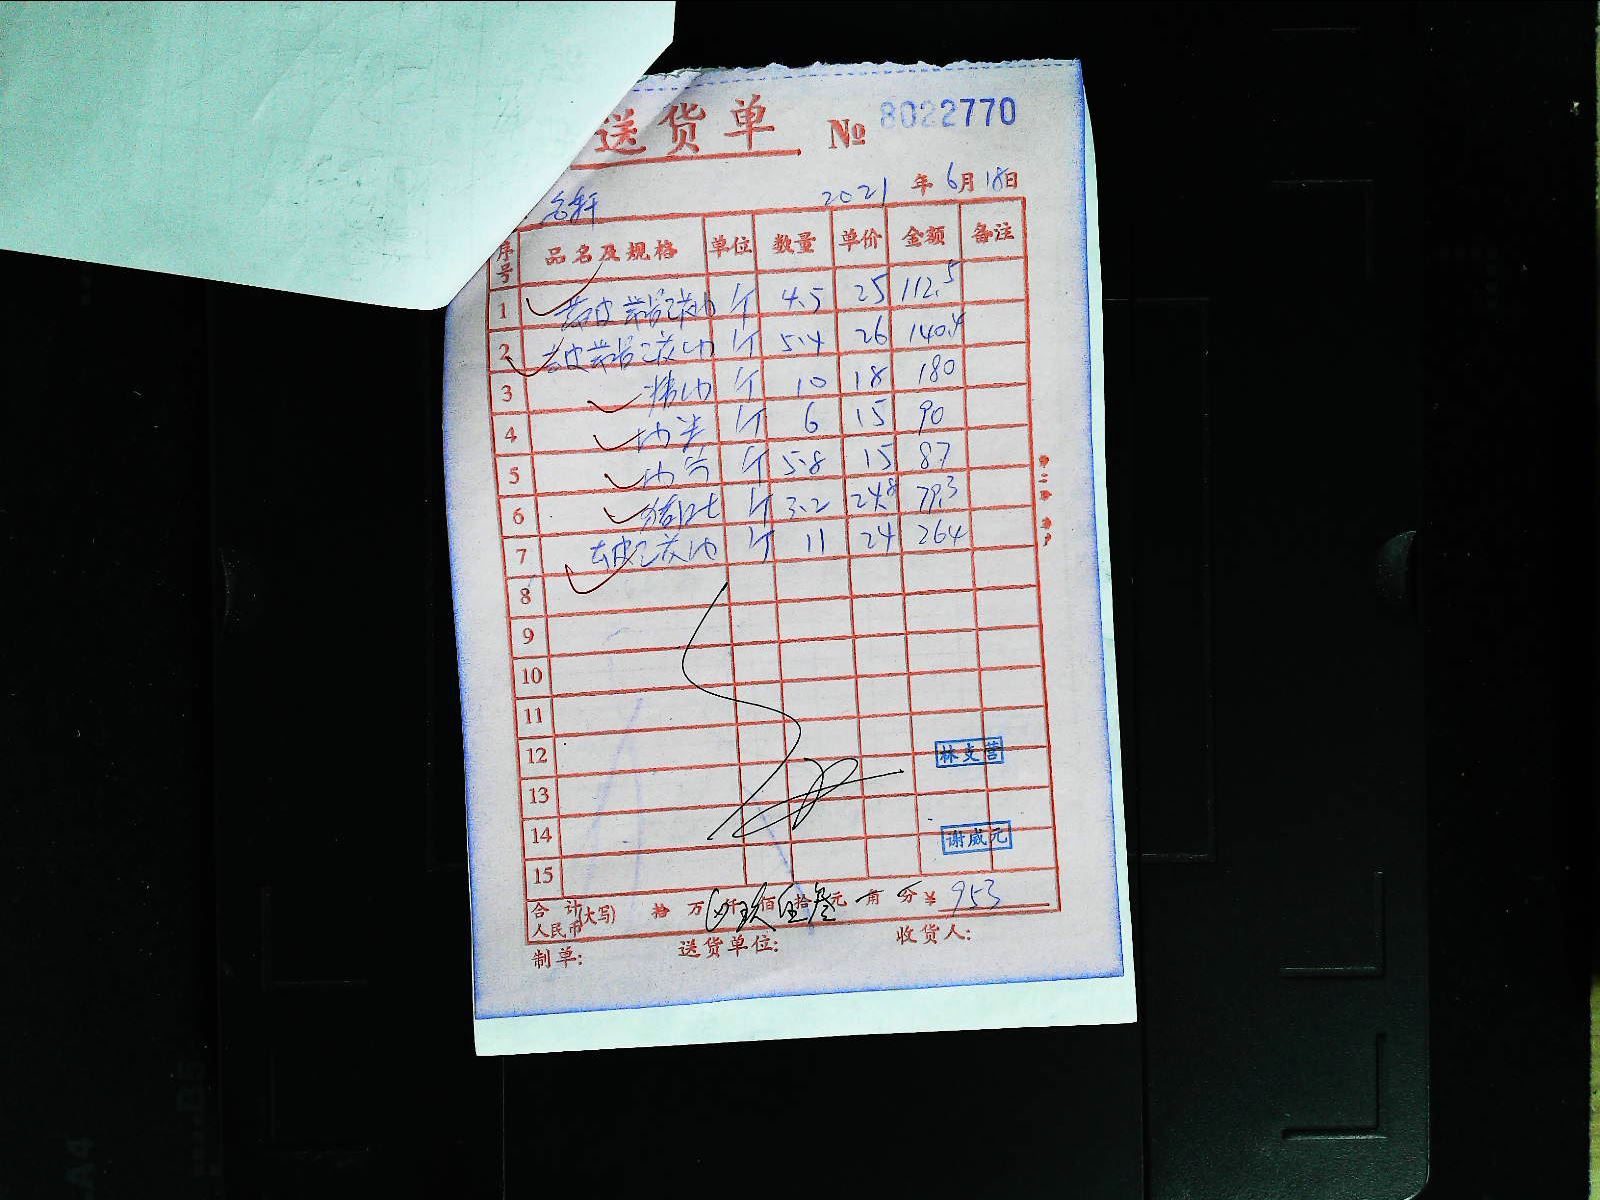 送货单 № 8022770
名轩 2021年6月18日
序号 品名及规格 单位 数量 单价 金额 备注
1 斤 4.5 25 112.5
2 斤 5.4 26 140.4
3 斤 10 18 180
4 斤 6 15 90
5 斤 5.8 15 87
6 斤 3.2 24.8 79.3
7 去皮 斤 11 24 264
8
9
10
11
12
13
14
15
林支营
谢威元
合计人民币(大写) 拾 万 仟玖佰伍拾叁元 角 分 ¥ 953
制单: 送货单位: 收货人: